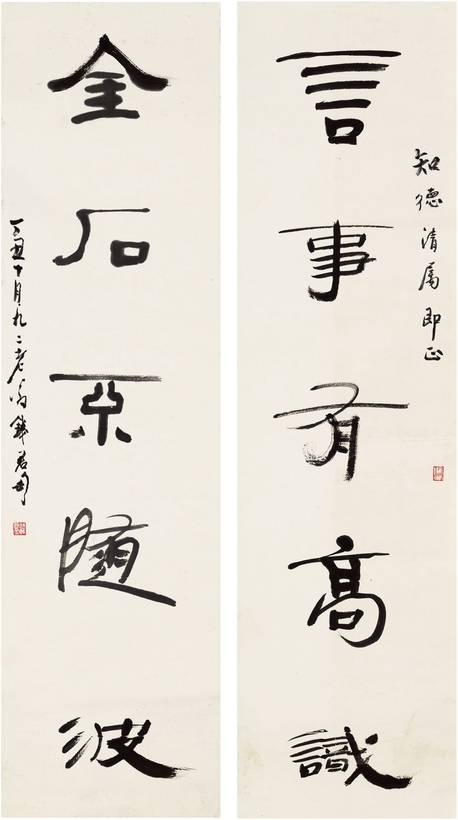 言事有高識
知德清属即正
金石不随波
丁丑十月九二老翁錢君匋